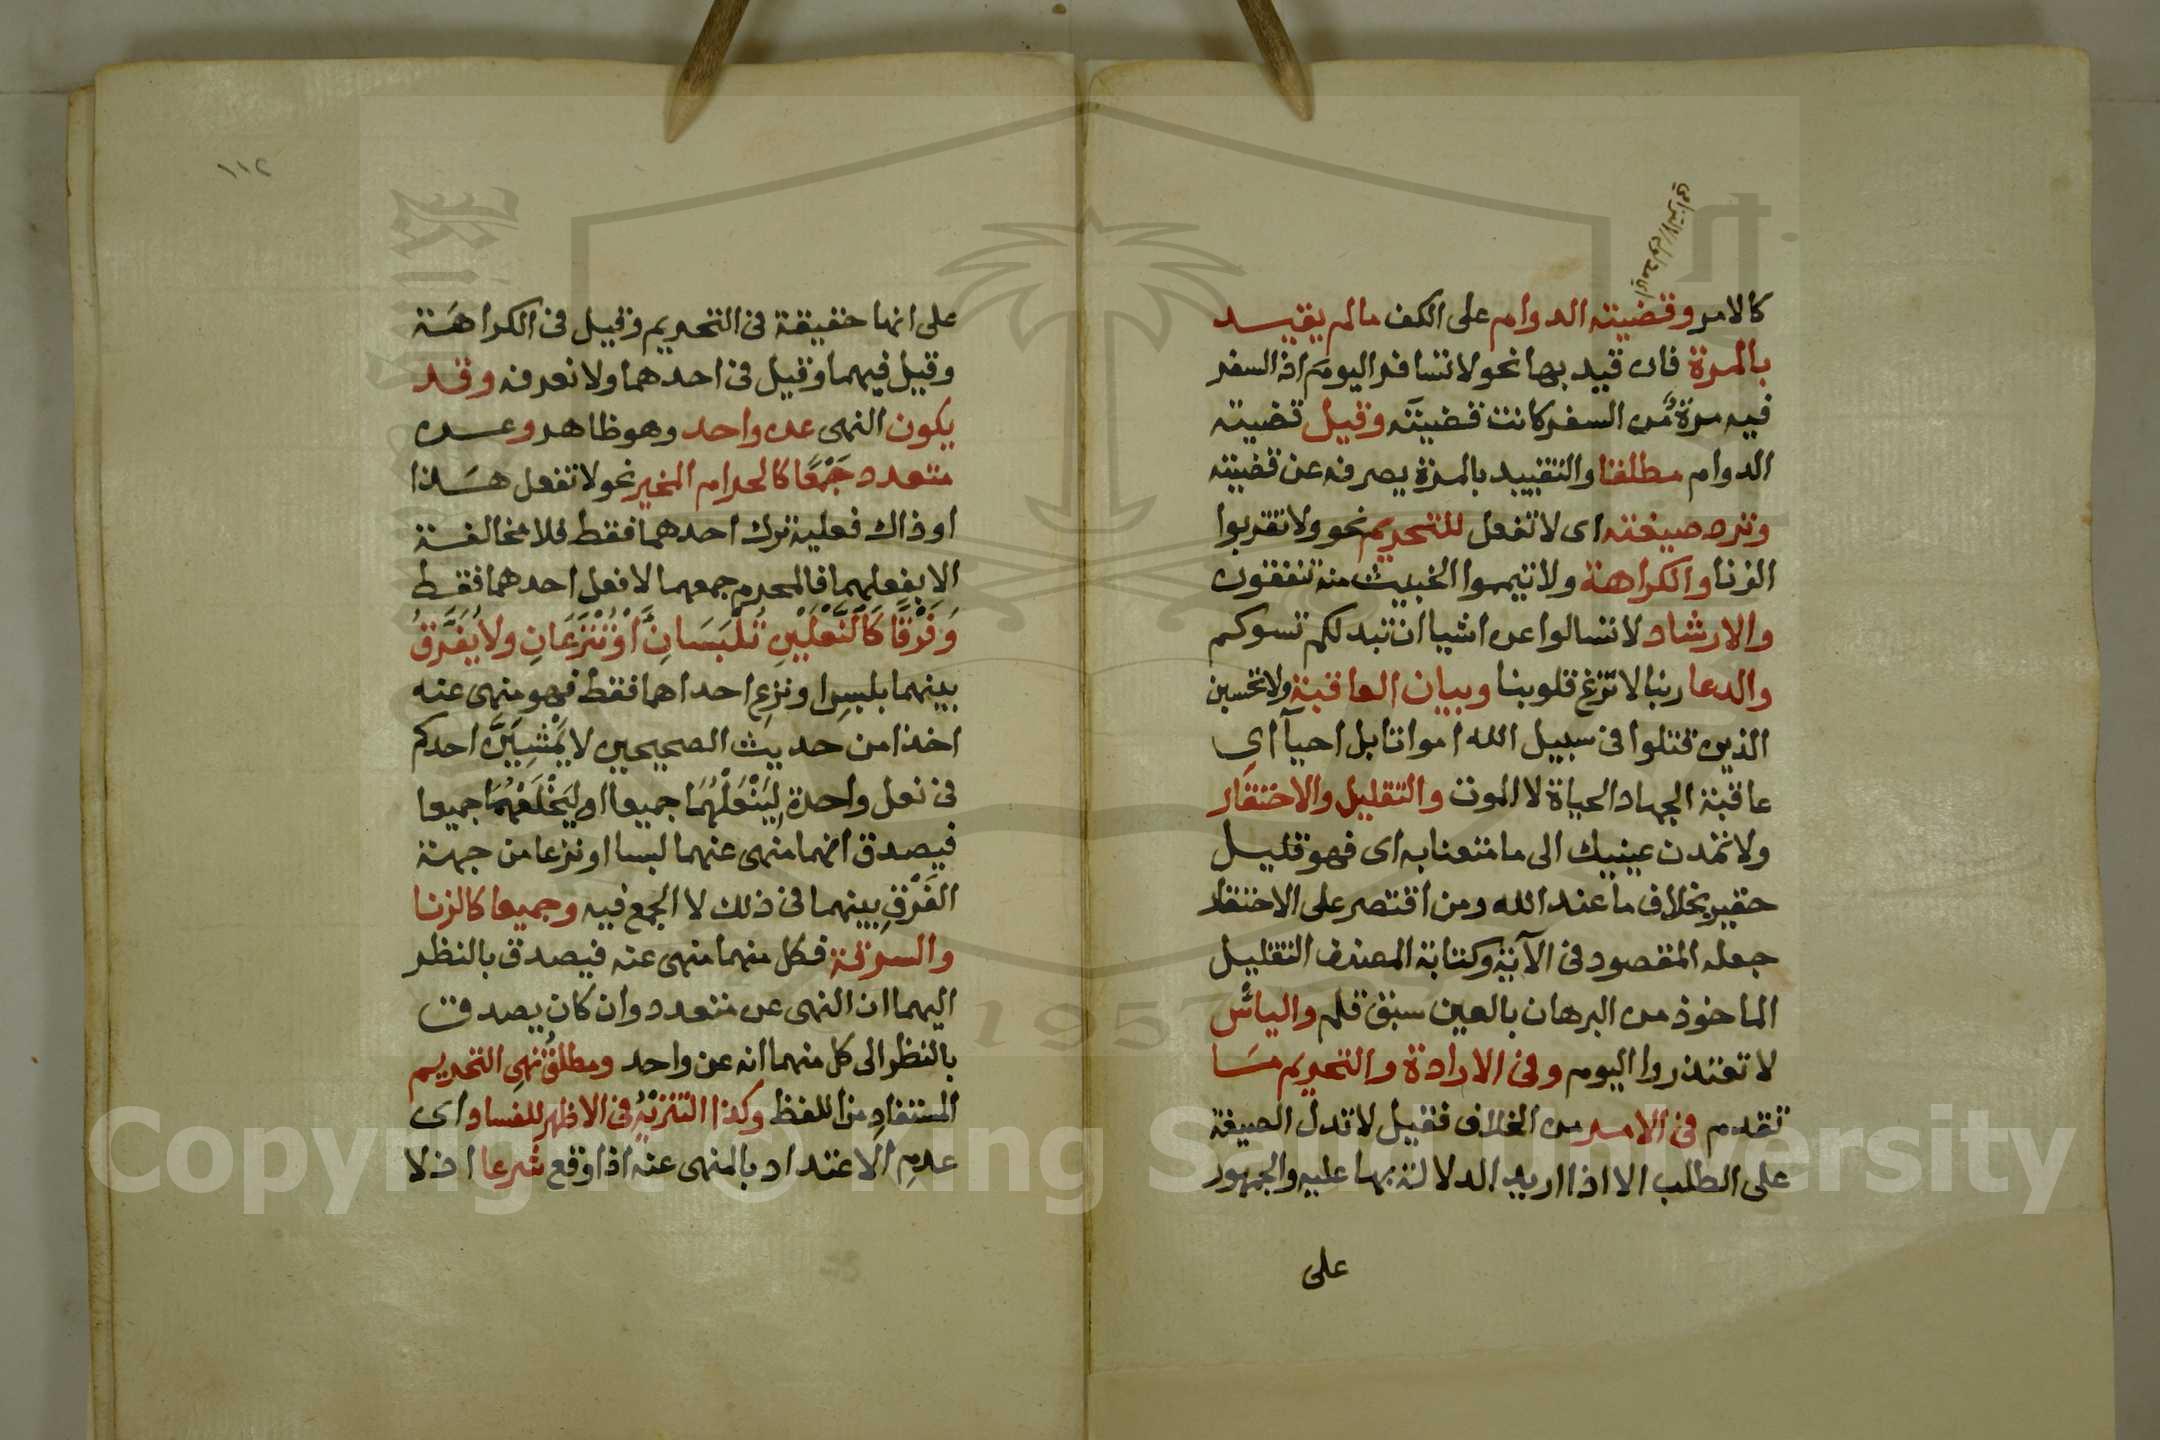 اي مدلول الالتزامي
كالامر وقضيته الدوام على الكف مالم يقيد
بالمرة فان قيد بها نحو لا تسافر اليوم اذ السفر
فيه مرة من السفر كانت قضيته وقيل قضيته
الدوام مطلقا والتقييد بالمرة يصرفه عن قضيته
وترد صيغته اى لا تفعل للتحريم نحو ولا تقربوا
الزنا والكراهة ولا تيمموا الخبيث منه تنفقون
والارشاد لا تسالوا عن اشيا ان تبد لكم تسوكم
والدعا ربنا لا تزغ قلوبنا وبيان العاقبة ولا تحسبن
الذين قتلوا فى سبيل الله امواتا بل احيآ اى
عاقبة الجهاد الحياة لا الموت والتقليل والاحتقار
ولا تمدن عينيك الى ما متعنا به اى فهو قليل
حقير بخلاف ما عند الله ومن اقتصر على الاحتقار
جعله المقصود فى الآية وكتابة المصنف التقليل
الماخوذ من البرهان بالعين سبق قلم والياس
لا تعتذروا اليوم وفى الارادة والتحريم مسا
تقدم فى الامر من الخلاف فقيل لا تدل الصيغة
على الطلب الا اذا اريد الدلالة بها عليه والجمهور
على
١١٢
على انها حقيقة فى التحريم وقيل فى الكراهة
وقيل فيهما وقيل فى احدهما ولا نعرفه وقد
يكون النهى عن واحد وهو ظاهر وعن
متعدد جَمْعًا كالحرام المخير نحو لا تفعل هذا
او ذاك فعليه ترك احدهما فقط فلا مخالفة
الا بفعلهما فالمحرم جمعهما لا فعل احدهما فقط
وَفَرْقًا كَالنَّعْلَيْنِ تُلْبَسَانِ اَوْ تُنْزَعَانِ ولا يُفَرَّقُ
بينهما بلبسِ او نزعِ احداهما فقط فهو منهى عنه
اخذا من حديث الصحيحين لا يَمْشِيَنَّ احدكم
فى نعل واحدة لِيَنْعَلْهُمَا جميعا او لِيَخْلَعْهُمَا جميعا
فيصدق انهما منهى عنهما لبسا او نزعا من جهة
الفَرْقِ بينهما فى ذلك لا الجمع فيه وجميعا كالزنا
والسرقة فكل منهما منهى عنه فيصدق بالنظر
اليهما ان النهى عن متعدد وان كان يصدق
بالنظر الى كل منهما انه عن واحد ومطلقُ نهىِ التحريم
المستفادِ من اللفظ وكذا التنزيهُ فى الاظهر للفساد اى
عدمِ الاعتداد بالمنهى عنه اذا وقع شرعا اذ لا